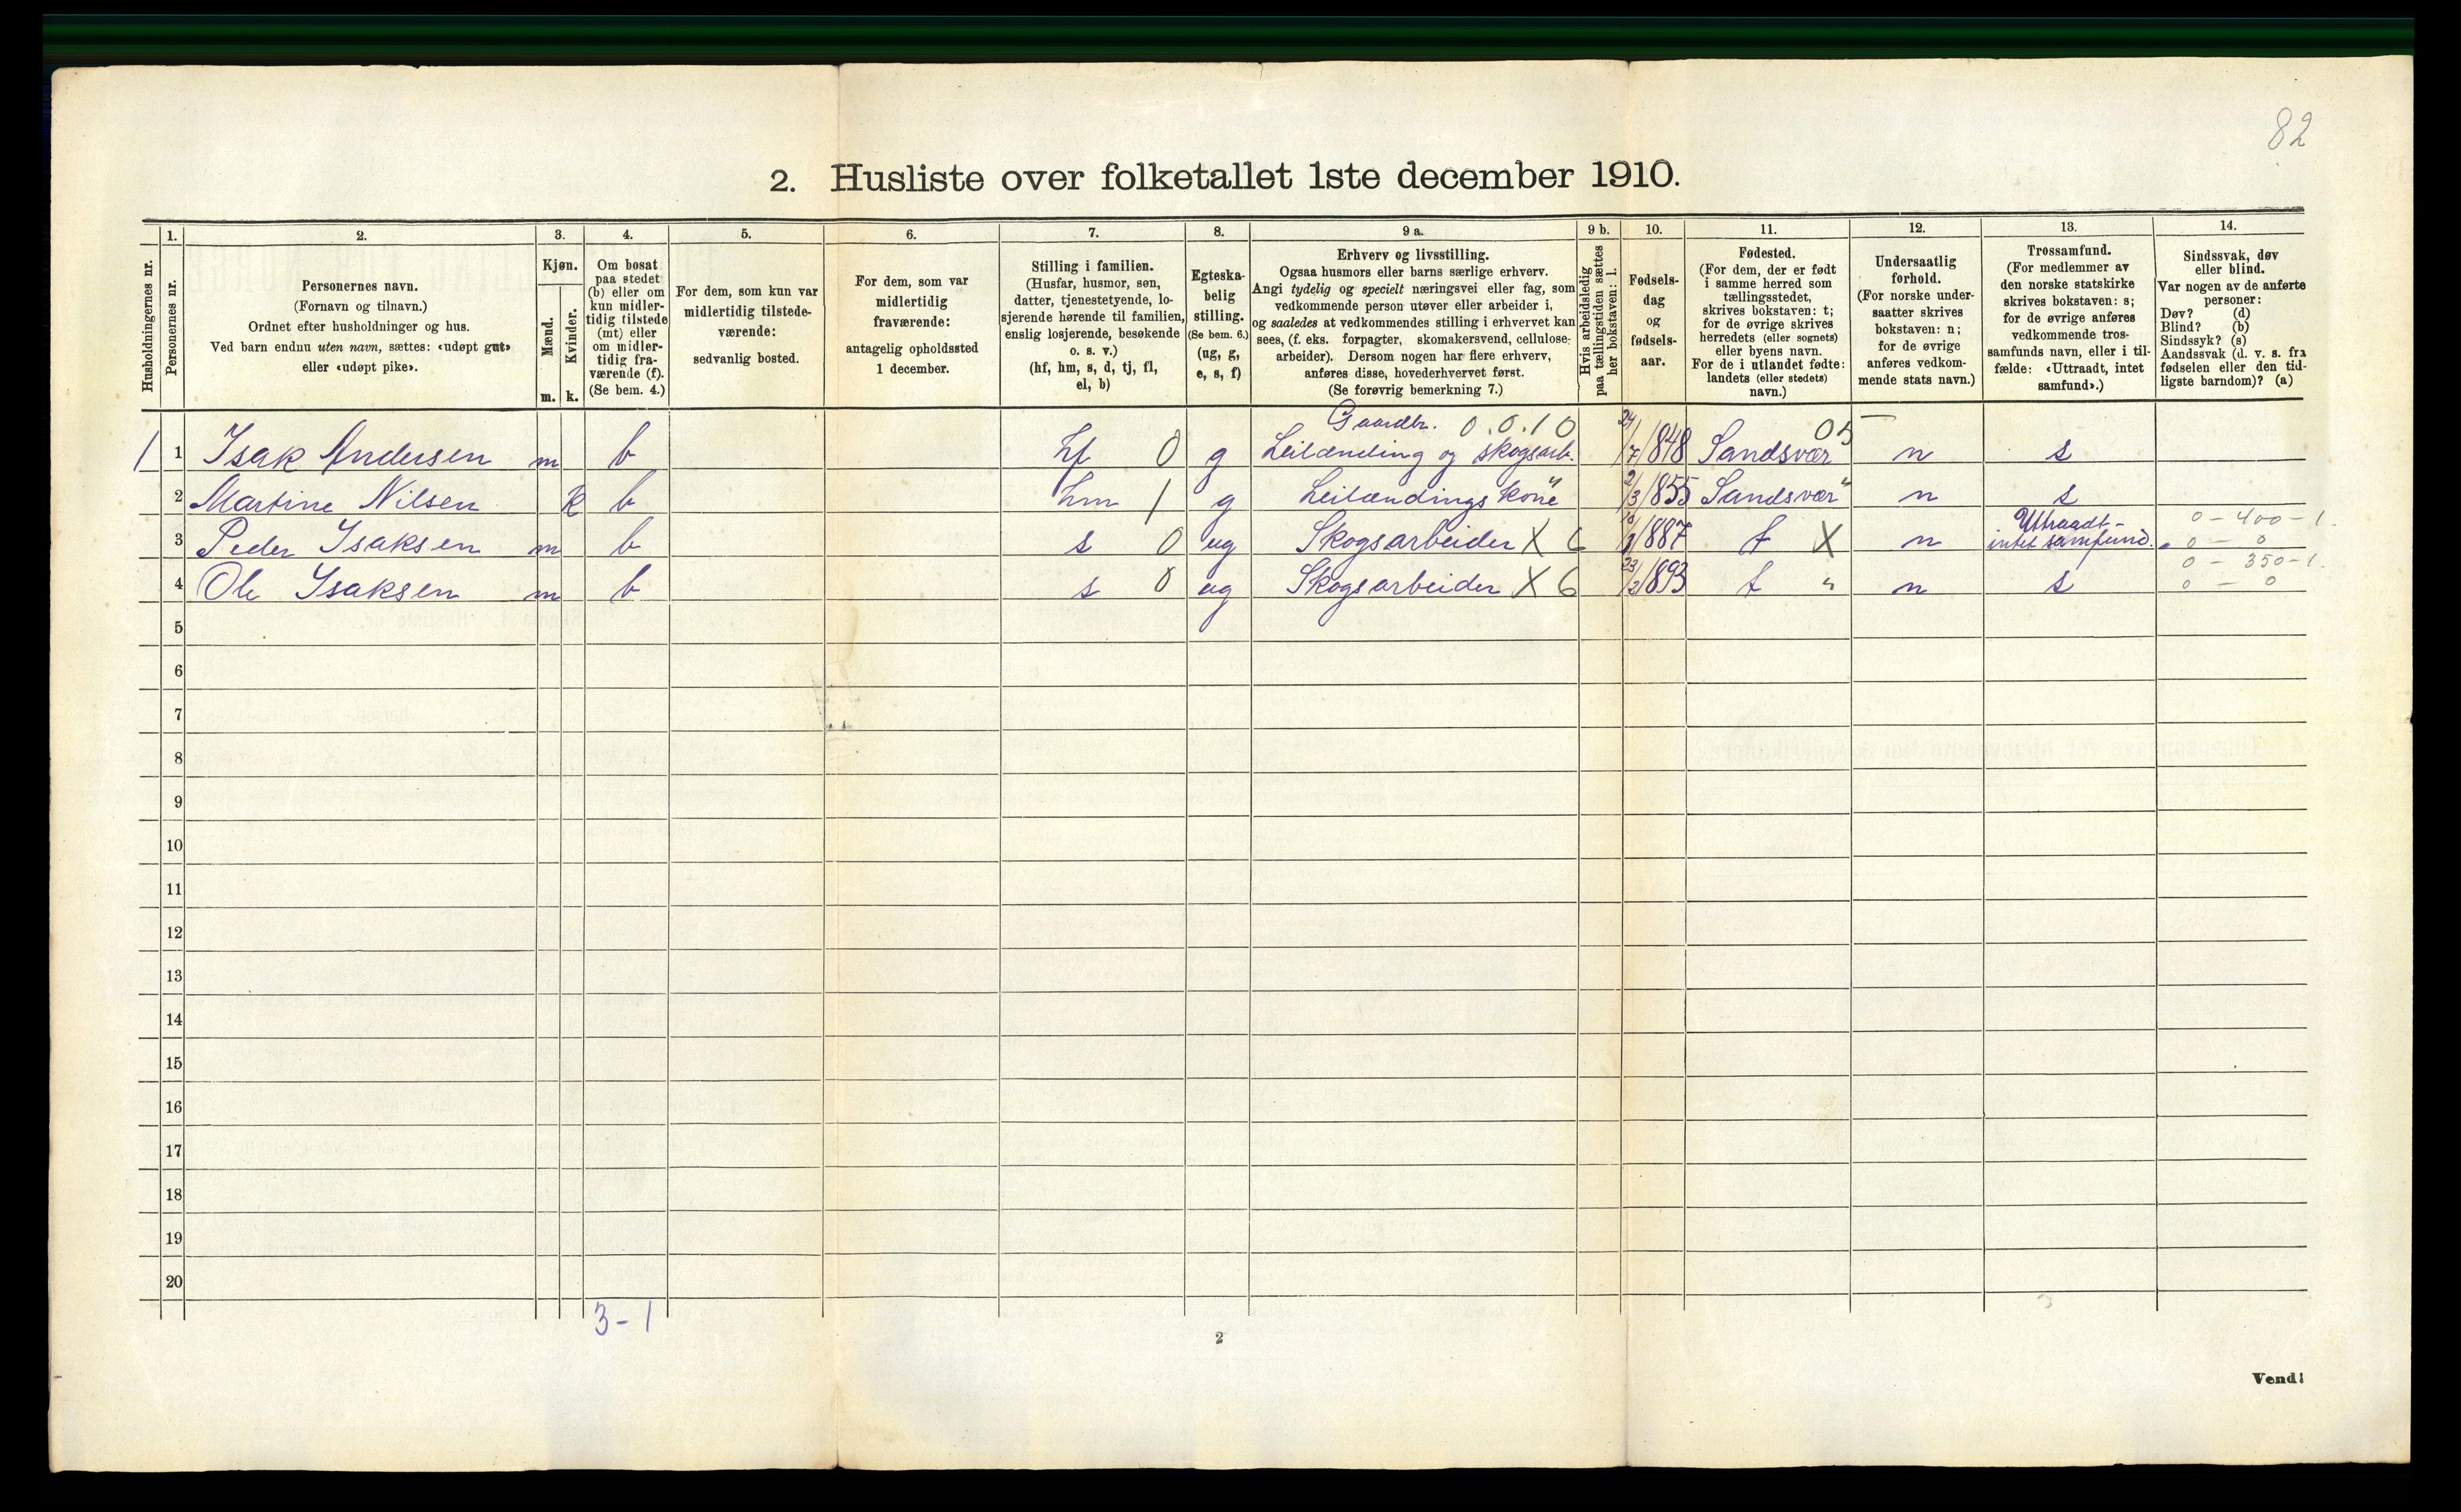 82
2. Husliste over folketallet 1ste december 1910.
Husholdningernes nr.
1.
Personernes nr.
2.
Personernes navn.
(Fornavn og tilnavn.)
Ordnet efter husholdninger og hus.
Ved barn endnu uten navn, sættes: «udøpt gut»
eller «udøpt pike».
3.
Kjøn.
Mænd.
Kvinder.
m. k.
4.
Om bosat
paa stedet
(b) eller om
kun midler-
tidig tilstede
(mt) eller
om midler-
tidig fra-
værende (f).
(Se bem. 4.)
5.
For dem, som kun var
midlertidig tilstede-
værende:
sedvanlig bosted.
6.
For dem, som var
midlertidig
fraværende:
antagelig opholdssted
1 december.
7.
Stilling i familien.
(Husfar, husmor, søn,
datter, tjenestetyende, lo-
sjerende hørende til familien,
enslig losjerende, besøkende
o. s. v.)
(hf, hm, s, d, tj, fl,
el, b)
8.
Egteska-
belig
stilling.
(Se bem. 6.)
(ug, g,
e, s, f)
9 a.
Erhverv og livsstilling.
Ogsaa husmors eller barns særlige erhverv.
Angi tydelig og specielt næringsvei eller fag, som
vedkommende person utøver eller arbeider i,
og saaledes at vedkommendes stilling i erhvervet kan
sees, (f. eks. forpagter, skomakersvend, cellulose-
arbeider). Dersom nogen har flere erhverv,
anføres disse, hovederhvervet først.
(Se forøvrig bemerkning 7.)
9 b.
Hvis arbeidsledig
paa tællingstiden sættes
her bokstaven: l.
10.
Fødsels-
dag
og
fødsels-
aar.
11.
Fødested.
(For dem, der er født
i samme herred som
tællingsstedet,
skrives bokstaven: t;
for de øvrige skrives
herredets (eller sognets)
eller byens navn.
For de i utlandet fødte:
landets (eller stedets)
navn.)
12.
Undersaatlig
forhold.
(For norske under-
saatter skrives
bokstaven: n;
for de øvrige
anføres vedkom-
mende stats navn.)
13.
Trossamfund.
(For medlemmer av
den norske statskirke
skrives bokstaven: s;
for de øvrige anføres
vedkommende tros-
samfunds navn, eller i til-
fælde: «Uttraadt, intet
samfund».)
14.
Sindssvak, døv
eller blind.
Var nogen av de anførte
personer:
Døv? (d)
Blind? (b)
Sindssyk? (s)
Aandssvak (d. v. s. fra
fødselen eller den tid-
ligste barndom)? (a)
Gaardbr. 0.0.10
1 1 Isak Andersen m b hf 0 g Leilænding og skogsarb. 24/7 1848 Sandsvær 05 n s
2 Martine Nilsen k b hm 1 g Leilændings kone " 2/3 1855 Sandsvær " n s
3 Peder Isaksen m b s 0 ug Skogsarbeider X 6 /887 t X n Uttraadt - intet samfund. 0 - 400 - 1. 0 - 0
4 Ole Isaksen m b s 0 ug Skogsarbeider X 6 23/2 1893 t " n s 0 - 350 - 1. 0 - 0
5
6
7
8
9
10
11
12
13
14
15
16
17
18
19
20
3 - 1
2
Vend!